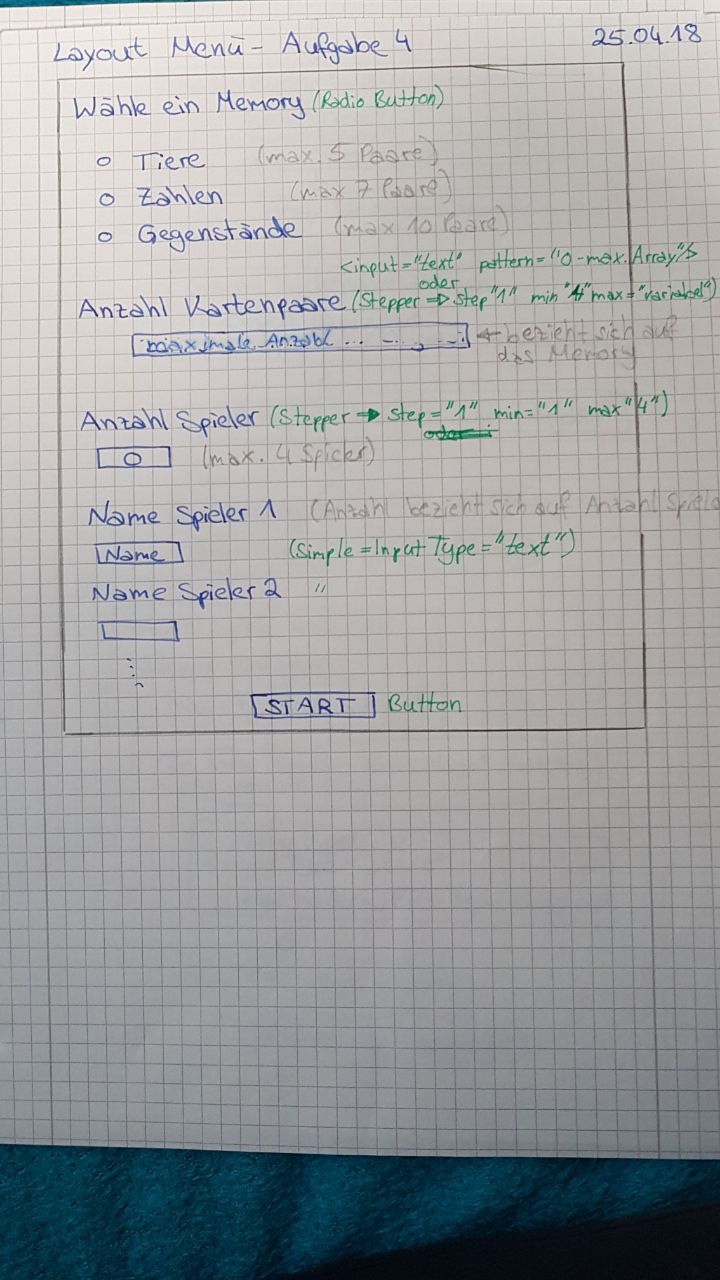 Layout Menü - Aufgabe 4 25.04.18
Wähle ein Memory (Radio Button)
o Tiere (max. 5 Paare)
o Zahlen (max 7 Paare)
o Gegenstände (max 10 Paare)
<input="text" pattern="0-max.Array"/>
oder
Anzahl Kartenpaare (Stepper → step "1" min "1" max="variabel")
maximale Anzahl ... ← bezieht sich auf
das Memory
Anzahl Spieler (Stepper → step="1" min="1" max"4")
0 (max. 4 Spieler)
Name Spieler 1 (Anzahl bezieht sich auf Anzahl Spiele
Name (Simple = Input Type="text")
Name Spieler 2 "
START Button